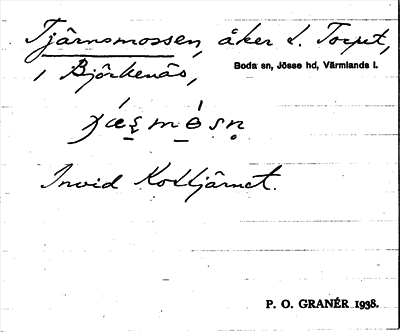 Tjärnsmossen, åker i. Torpet,
i Björkenäs,
Boda sn, Jösse hd, Värmlands l.
Invid Kottjärnet.
P. O. GRANÉR 1938.